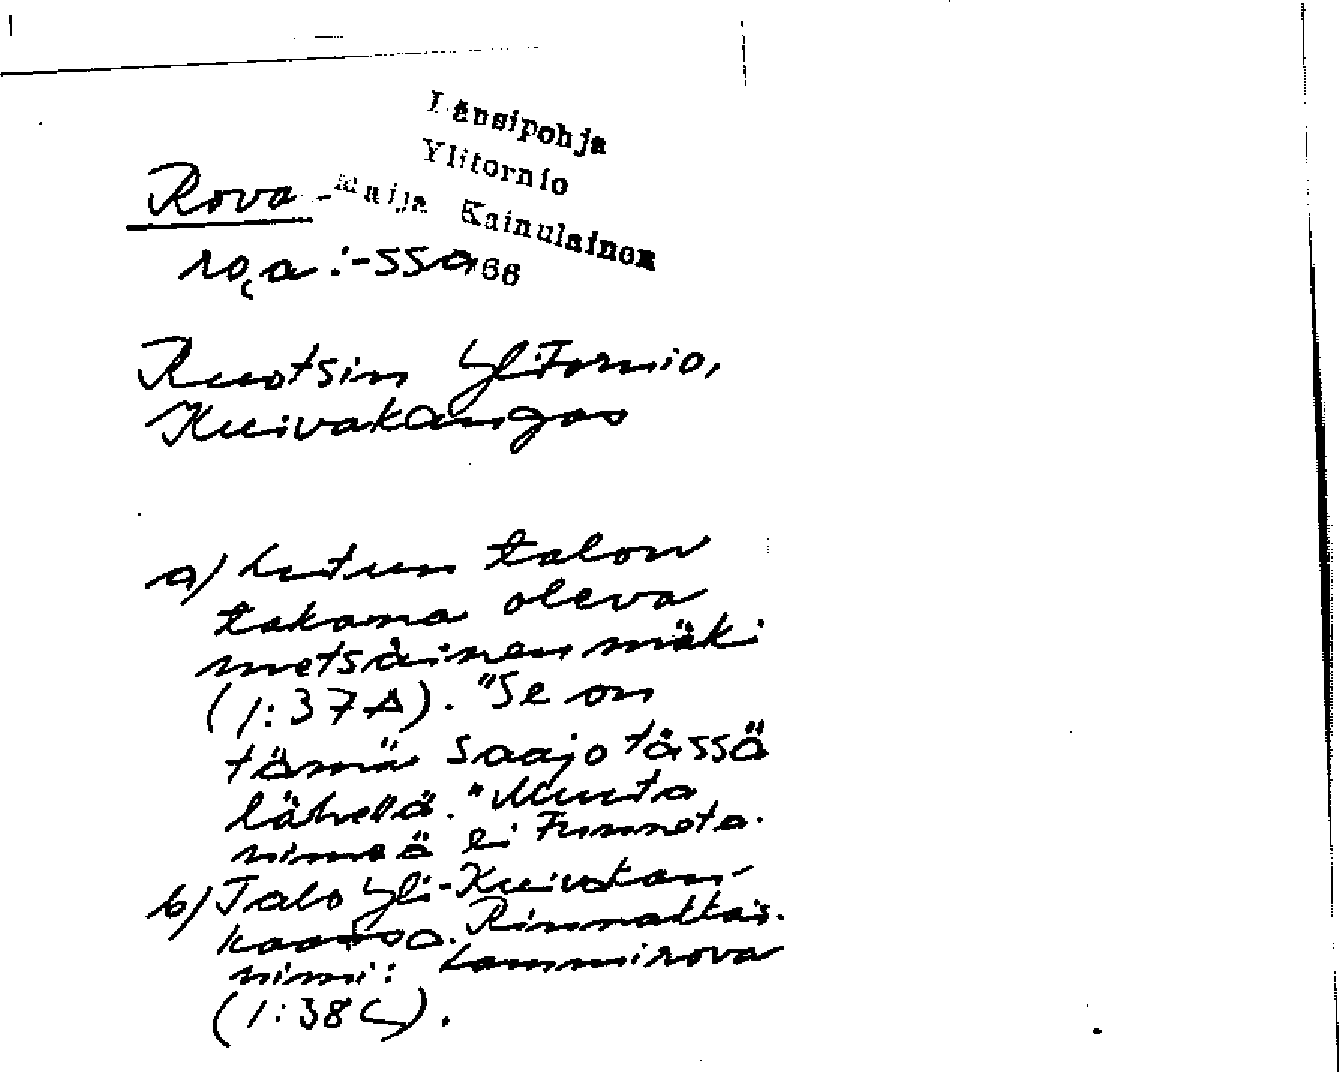 Länsipohja
Ylitornio
Maija Kainulainen
66
Rova
ro̜a :-ssa
Ruotsin Ylitornio,
Kuivakangas
a) Lutun talon
takana oleva
metsäinen mäki
(1:37A). "Se on
tämä saajo tässä
lähellä." Muuta
nimeä ei tunneta.
b) Talo Yli-Kuivakan-
kaassa. Rinnakkais-
nimi: Lammirova
(1:38C).